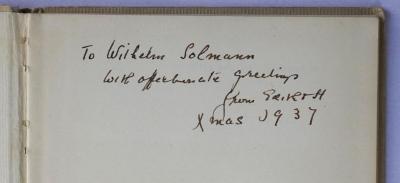 To Wilhelm Solmann
with affectionate greetings
from
Xmas 1937